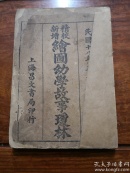 民國十
精校
新增
繪圖幼學故事瓊林
上海昌文書局印行